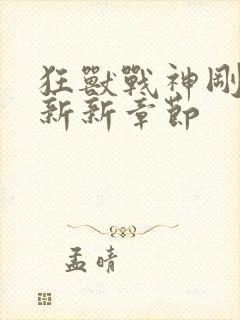 狂獸戰神剛
新新章節
孟晴